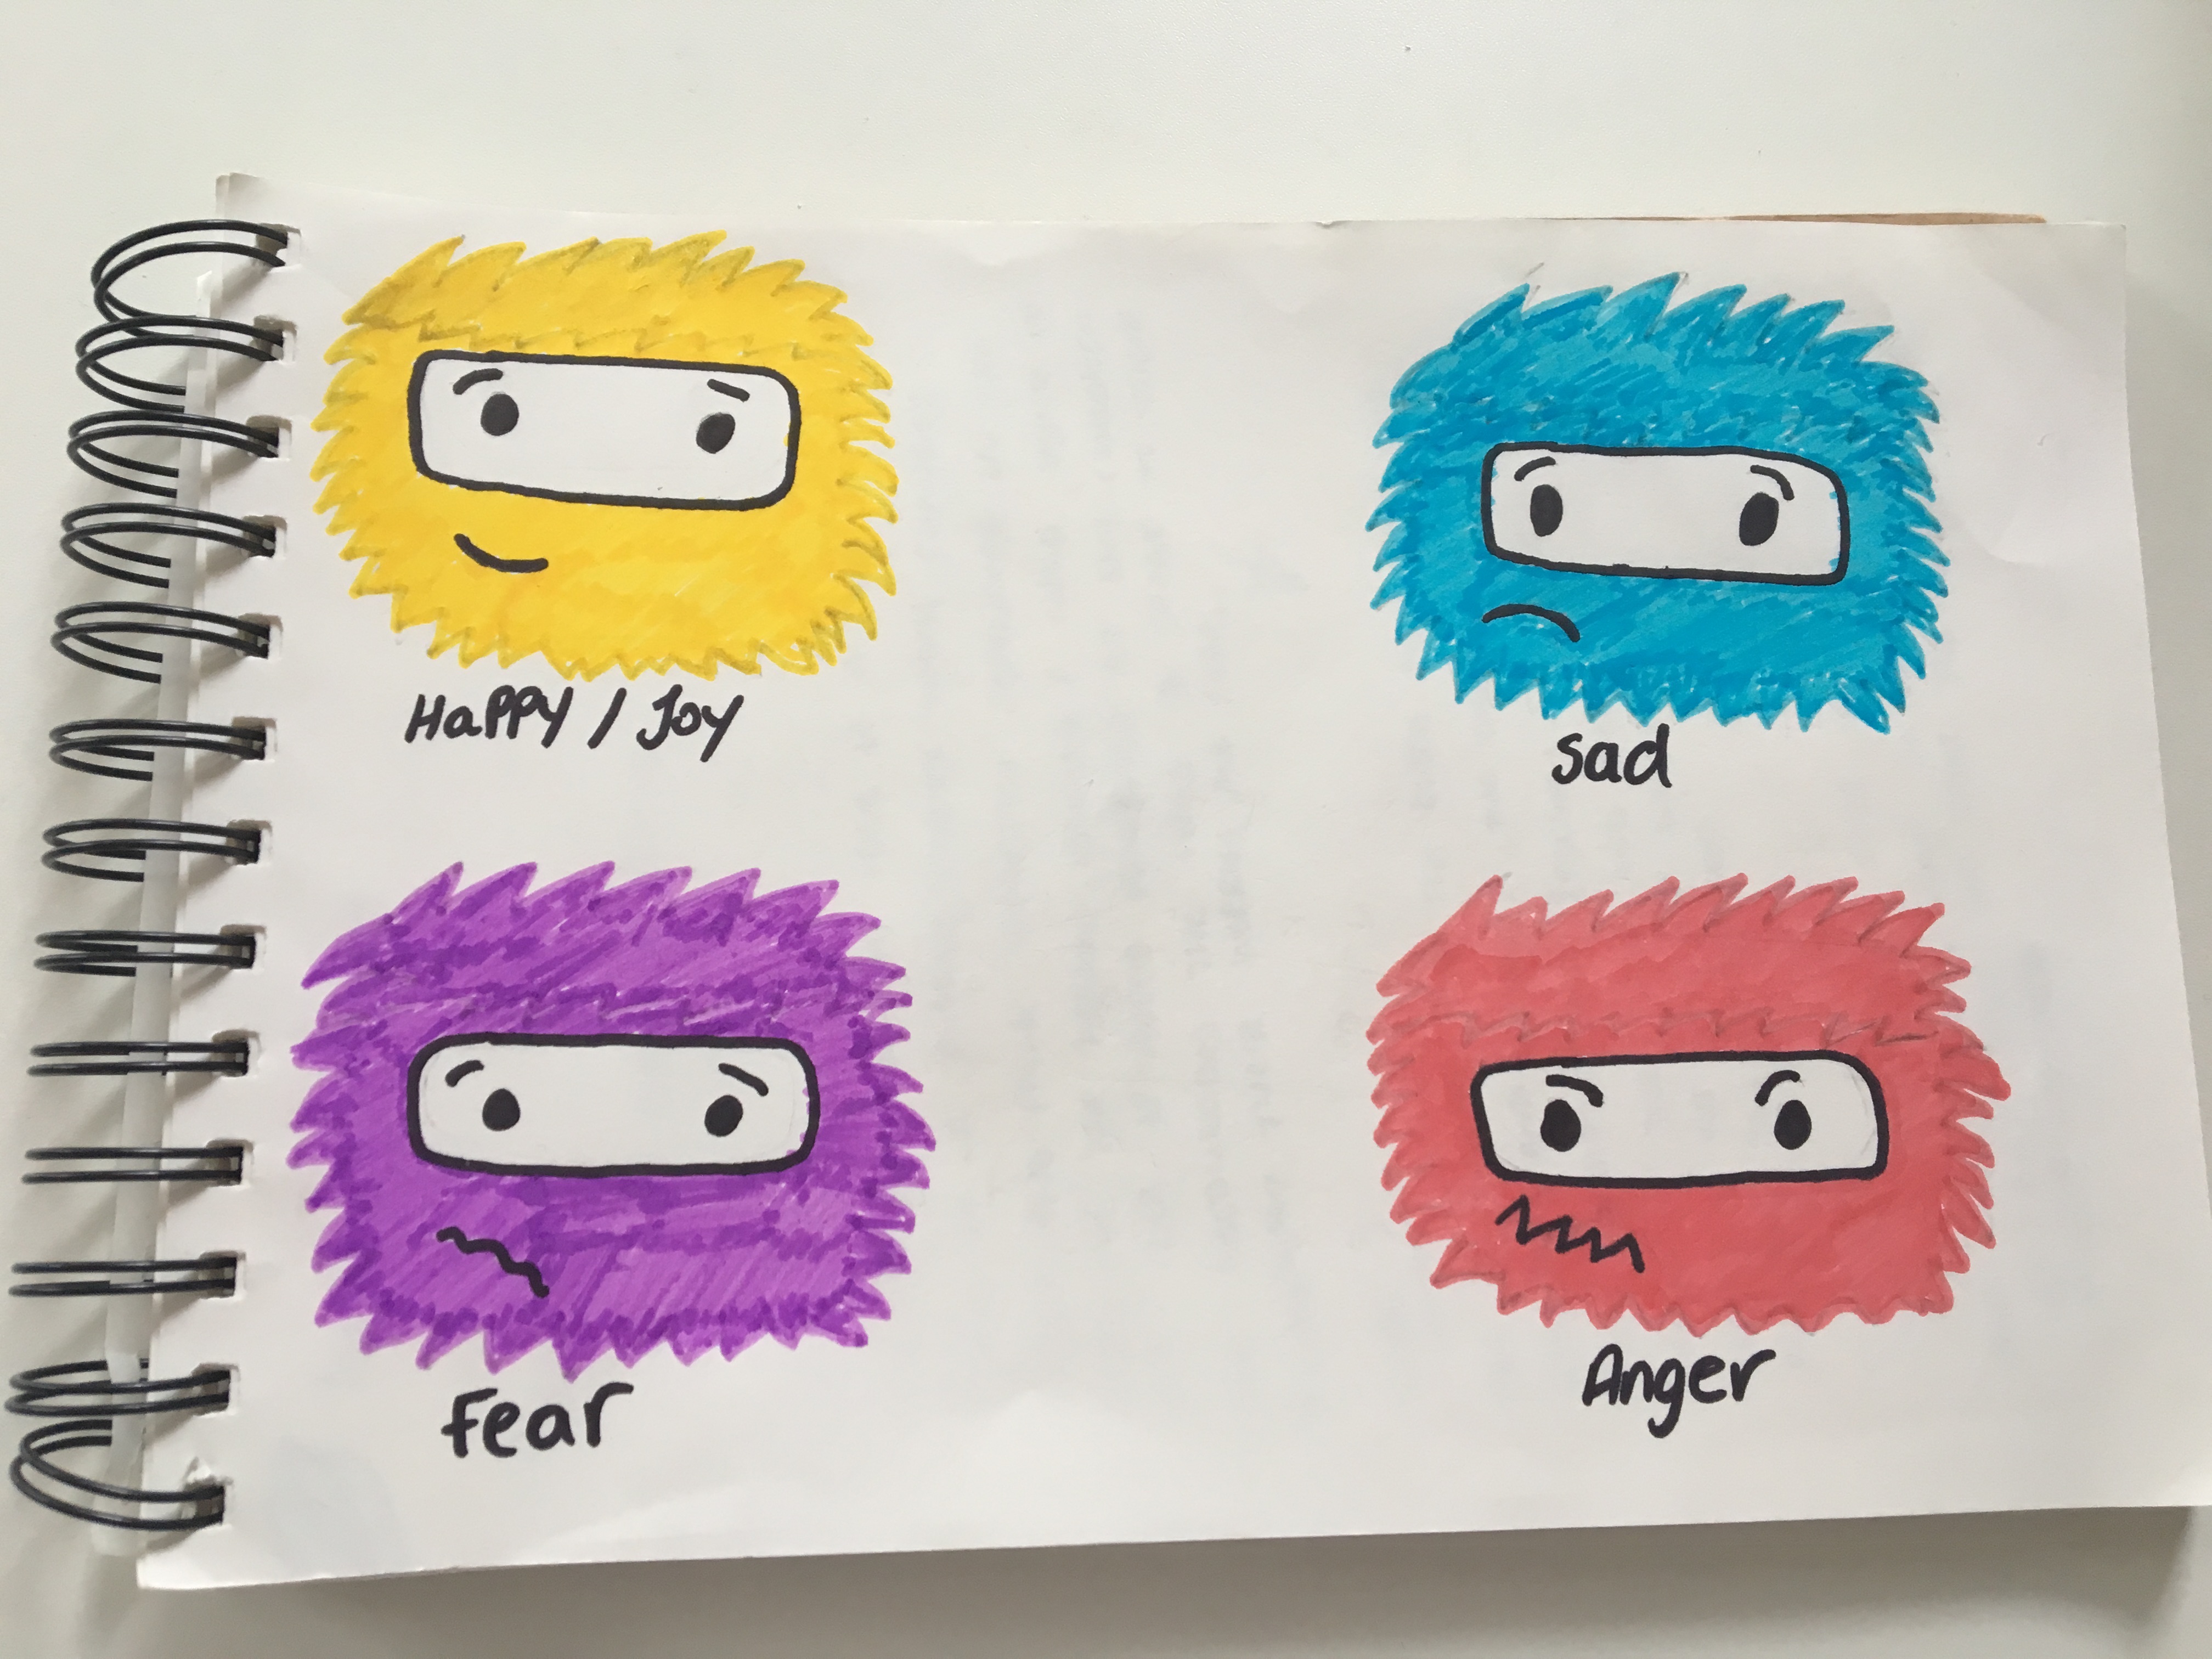 Happy / Joy
sad
Fear
Anger